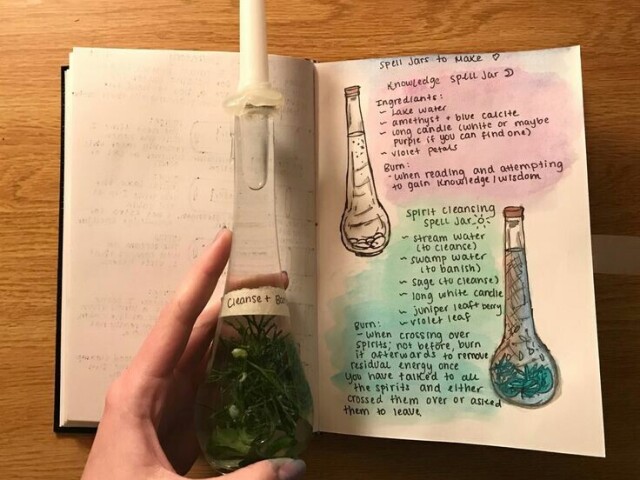 Spell Jars to Make ♡
Knowledge Spell Jar
Ingrediants:
~ Lake water
~ amethyst + blue calcite
~ long candle (white or maybe
purple if you can find one)
~ violet petals
Burn:
- when reading and attempting
to gain knowledge/wisdom
Spirit Cleansing
Spell Jar
~ stream water
(to cleanse)
~ swamp water
(to banish)
~ sage (to cleanse)
~ long white candle
~ juniper leaf + berry
~ violet leaf
Burn:
- when crossing over
spirits, not before, burn
it afterwards to remove
residual energy once
you have talked to all
the spirits and either
crossed them over or asked
them to leave
Cleanse +